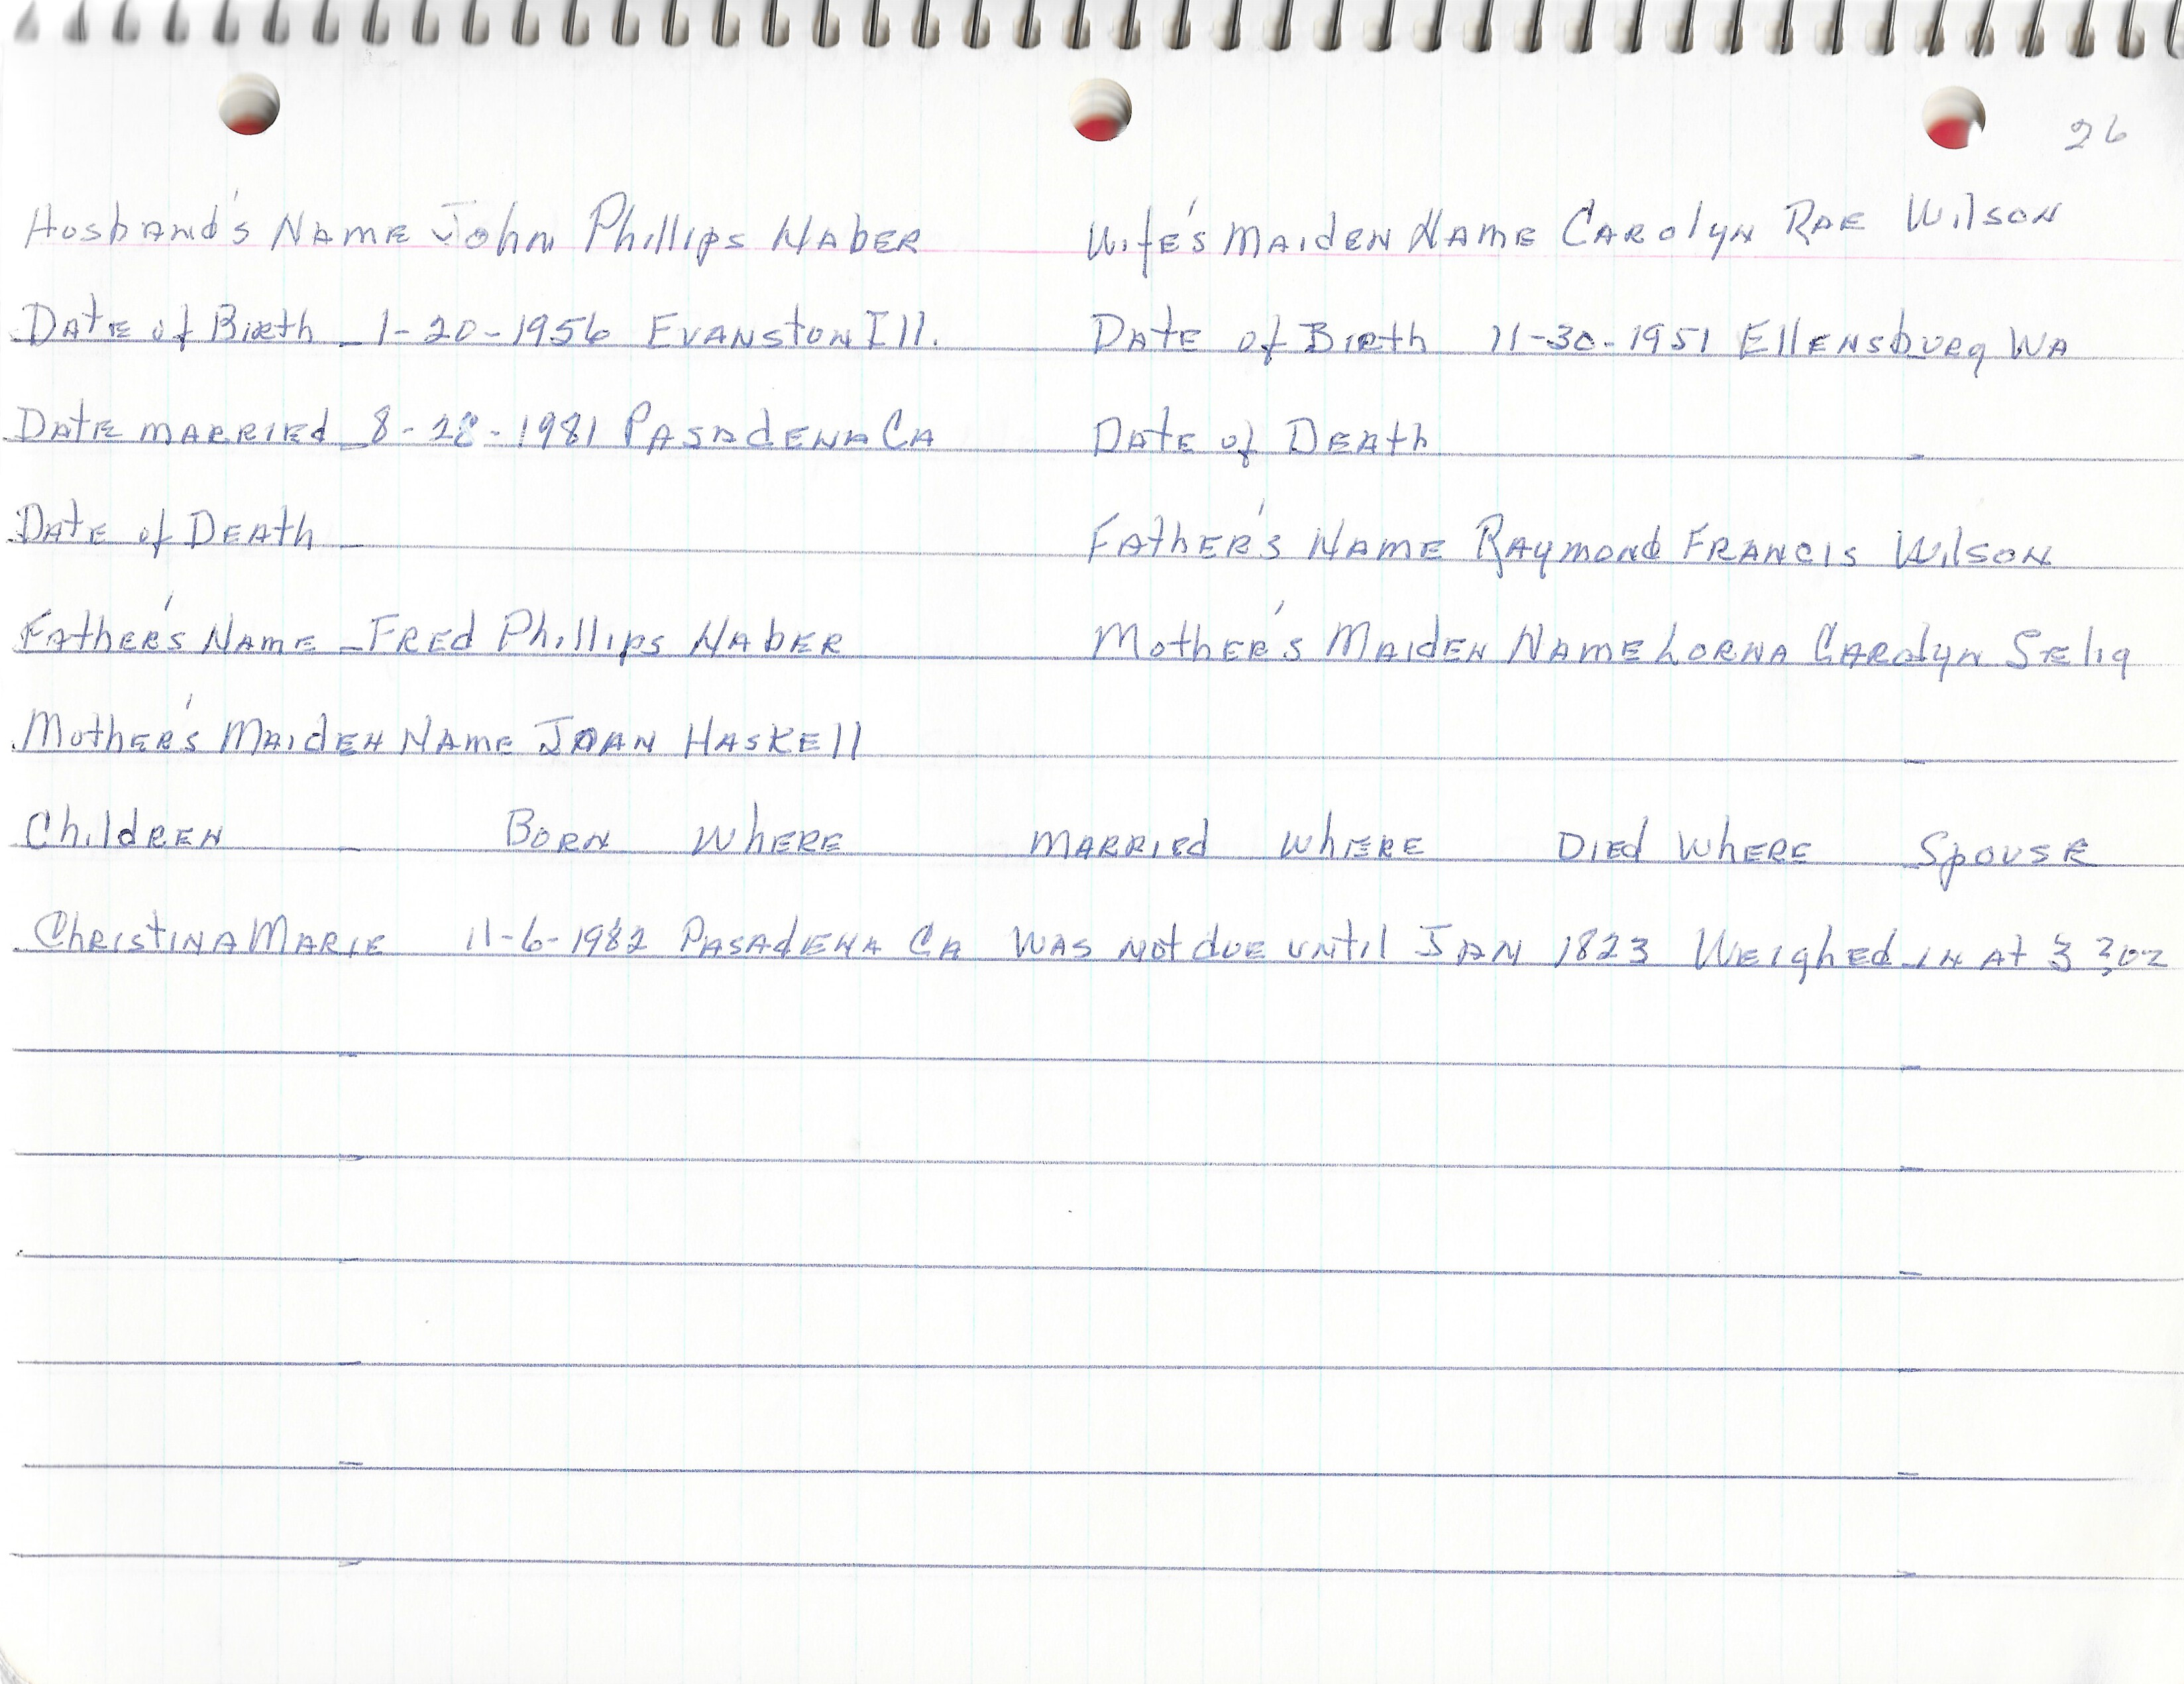 26
Husband's Name John Phillips Haber
Wife's Maiden Name Carolyn Rae Wilson
Date of Birth 1-20-1956 Evanston Ill.
Date of Birth 11-30-1951 Ellensburg WA
Date married 8-28-1981 Pasadena Ca
Date of Death
Date of Death
Father's Name Raymond Francis Wilson
Father's Name Fred Phillips Haber
Mother's Maiden Name Lorna Carolyn Selig
Mother's Maiden Name Joan Haskell
Children Born Where Married Where Died Where Spouse
Christina Marie 11-6-1982 Pasadena Ca Was not due until Jan 1823 Weighed in at 3 oz